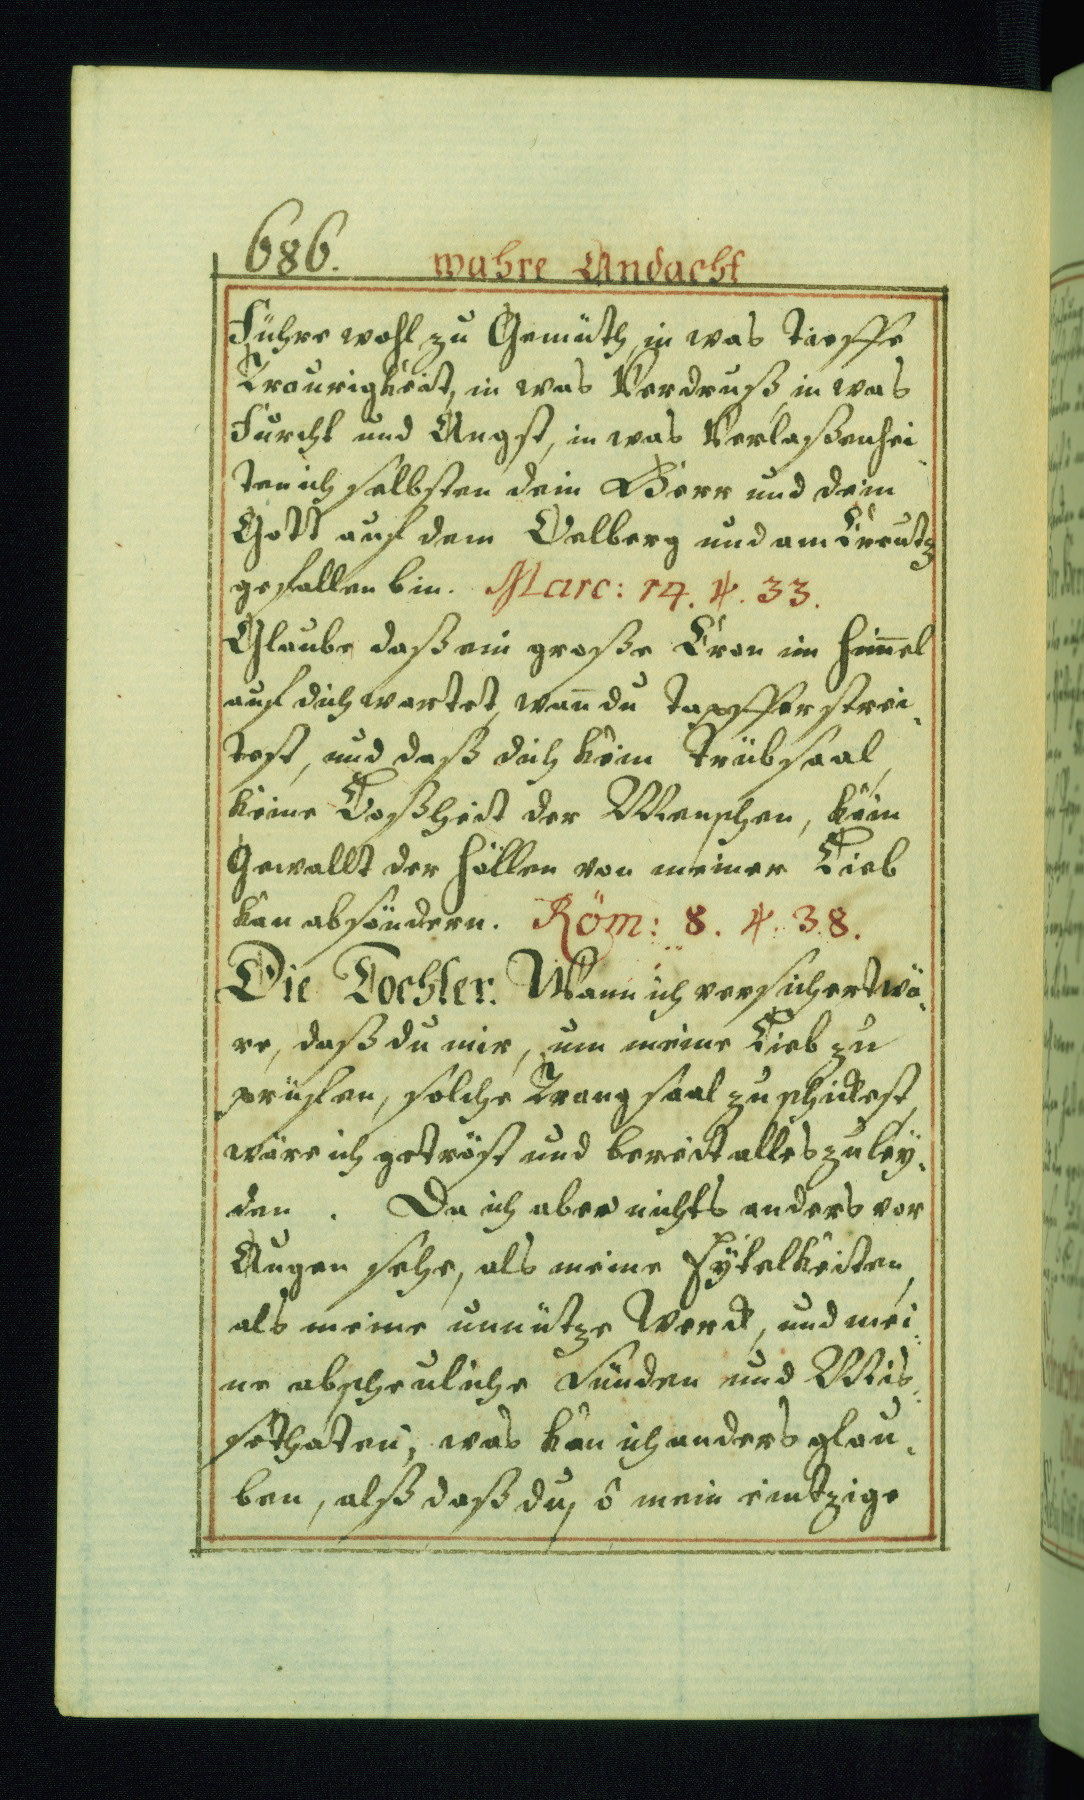 686. wahre Andacht
Führe wohl zu Gemüth, in was tieffe
Traurigkeit, in was Verdruß, in was
Furcht und Angst, in was Verlaßenhei¸
ten ich selbsten dein Herr und dein
Gott auf dem Oelberg und am Creutz
gefallen bin. Marc: 14. ℣. 33.
Glaube daß ein große Cron im Him̄el
auf dich wartet, wan̄ du tapffer strei¸
test, und daß dich kein Trübsaal,
keine Boßheit der Menschen, kein
Gewallt der Höllen von meiner Lieb
kan absöndern. Röm: 8. ℣. 38.
Die Tochter. Wann ich versichert wä¸
re, daß du mir, um meine Lieb zu
prüfen, solche Trangsaal zuschickest,
wäre ich getröst und bereit alles zu leÿ¸
den. Da ich aber nichts anders vor
Augen sehe, als meine Eÿtelkeiten,
als meine unnütze Werck, und mei¸
ne abscheuliche Sünden und Mis¸
sethaten, was kan ich anders glau¸
ben, alß daß du, ô mein eintzige